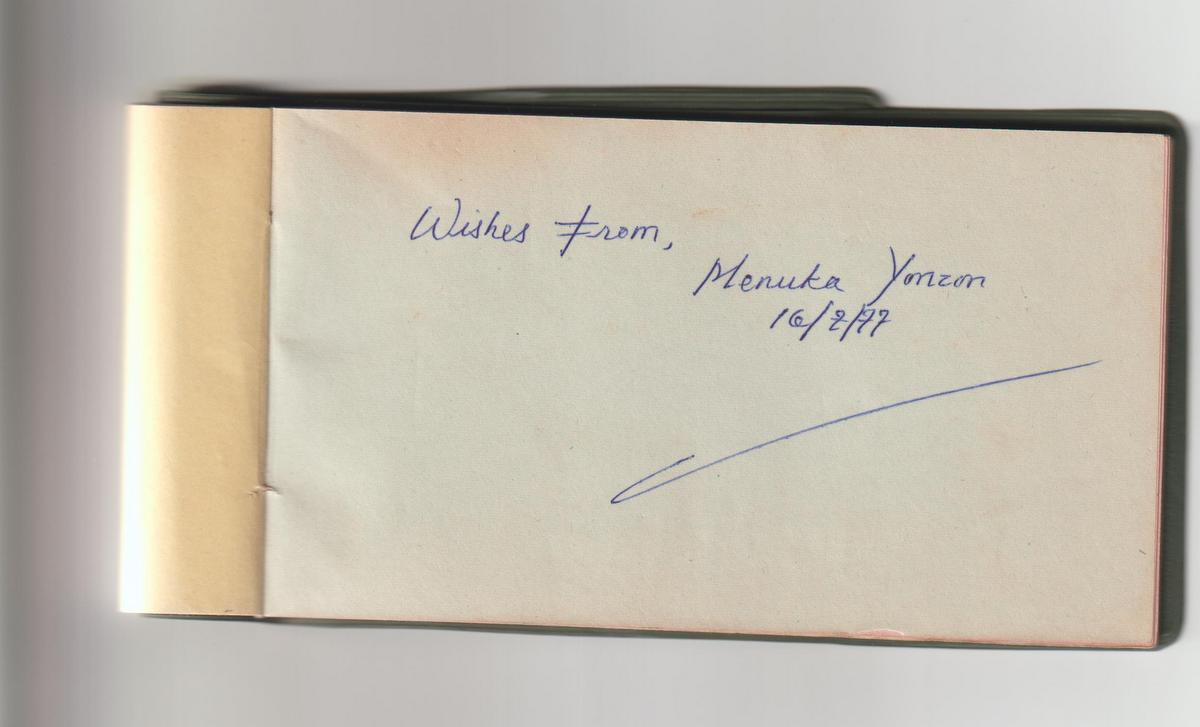 Wishes From,
Menuka Yonzon
16/2/77